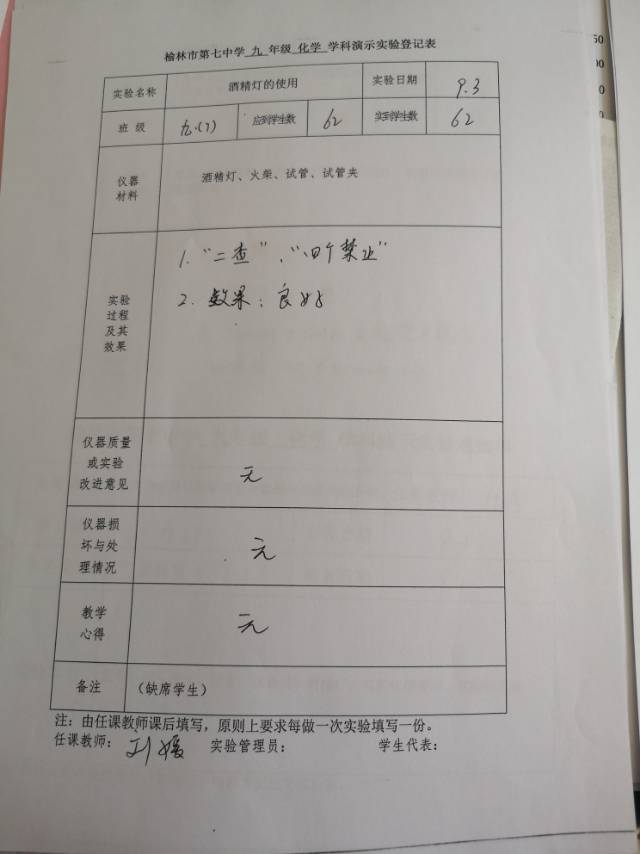 榆林市第七中学 九 年级 化学 学科演示实验登记表
实验名称 酒精灯的使用 实验日期 9.3
班 级 九.(7) 应到学生数 62 实到学生数 62
仪器
材料
酒精灯、火柴、试管、试管夹
实验
过程
及其
效果
1. "二查"、"四个禁止"
2. 效果:良好
仪器质量
或实验
改进意见
无
仪器损
坏与处
理情况
无
教学
心得
无
备注 (缺席学生)
注:由任课教师课后填写,原则上要求每做一次实验填写一份。
任课教师:刘媛 实验管理员: 学生代表:
50
00
0